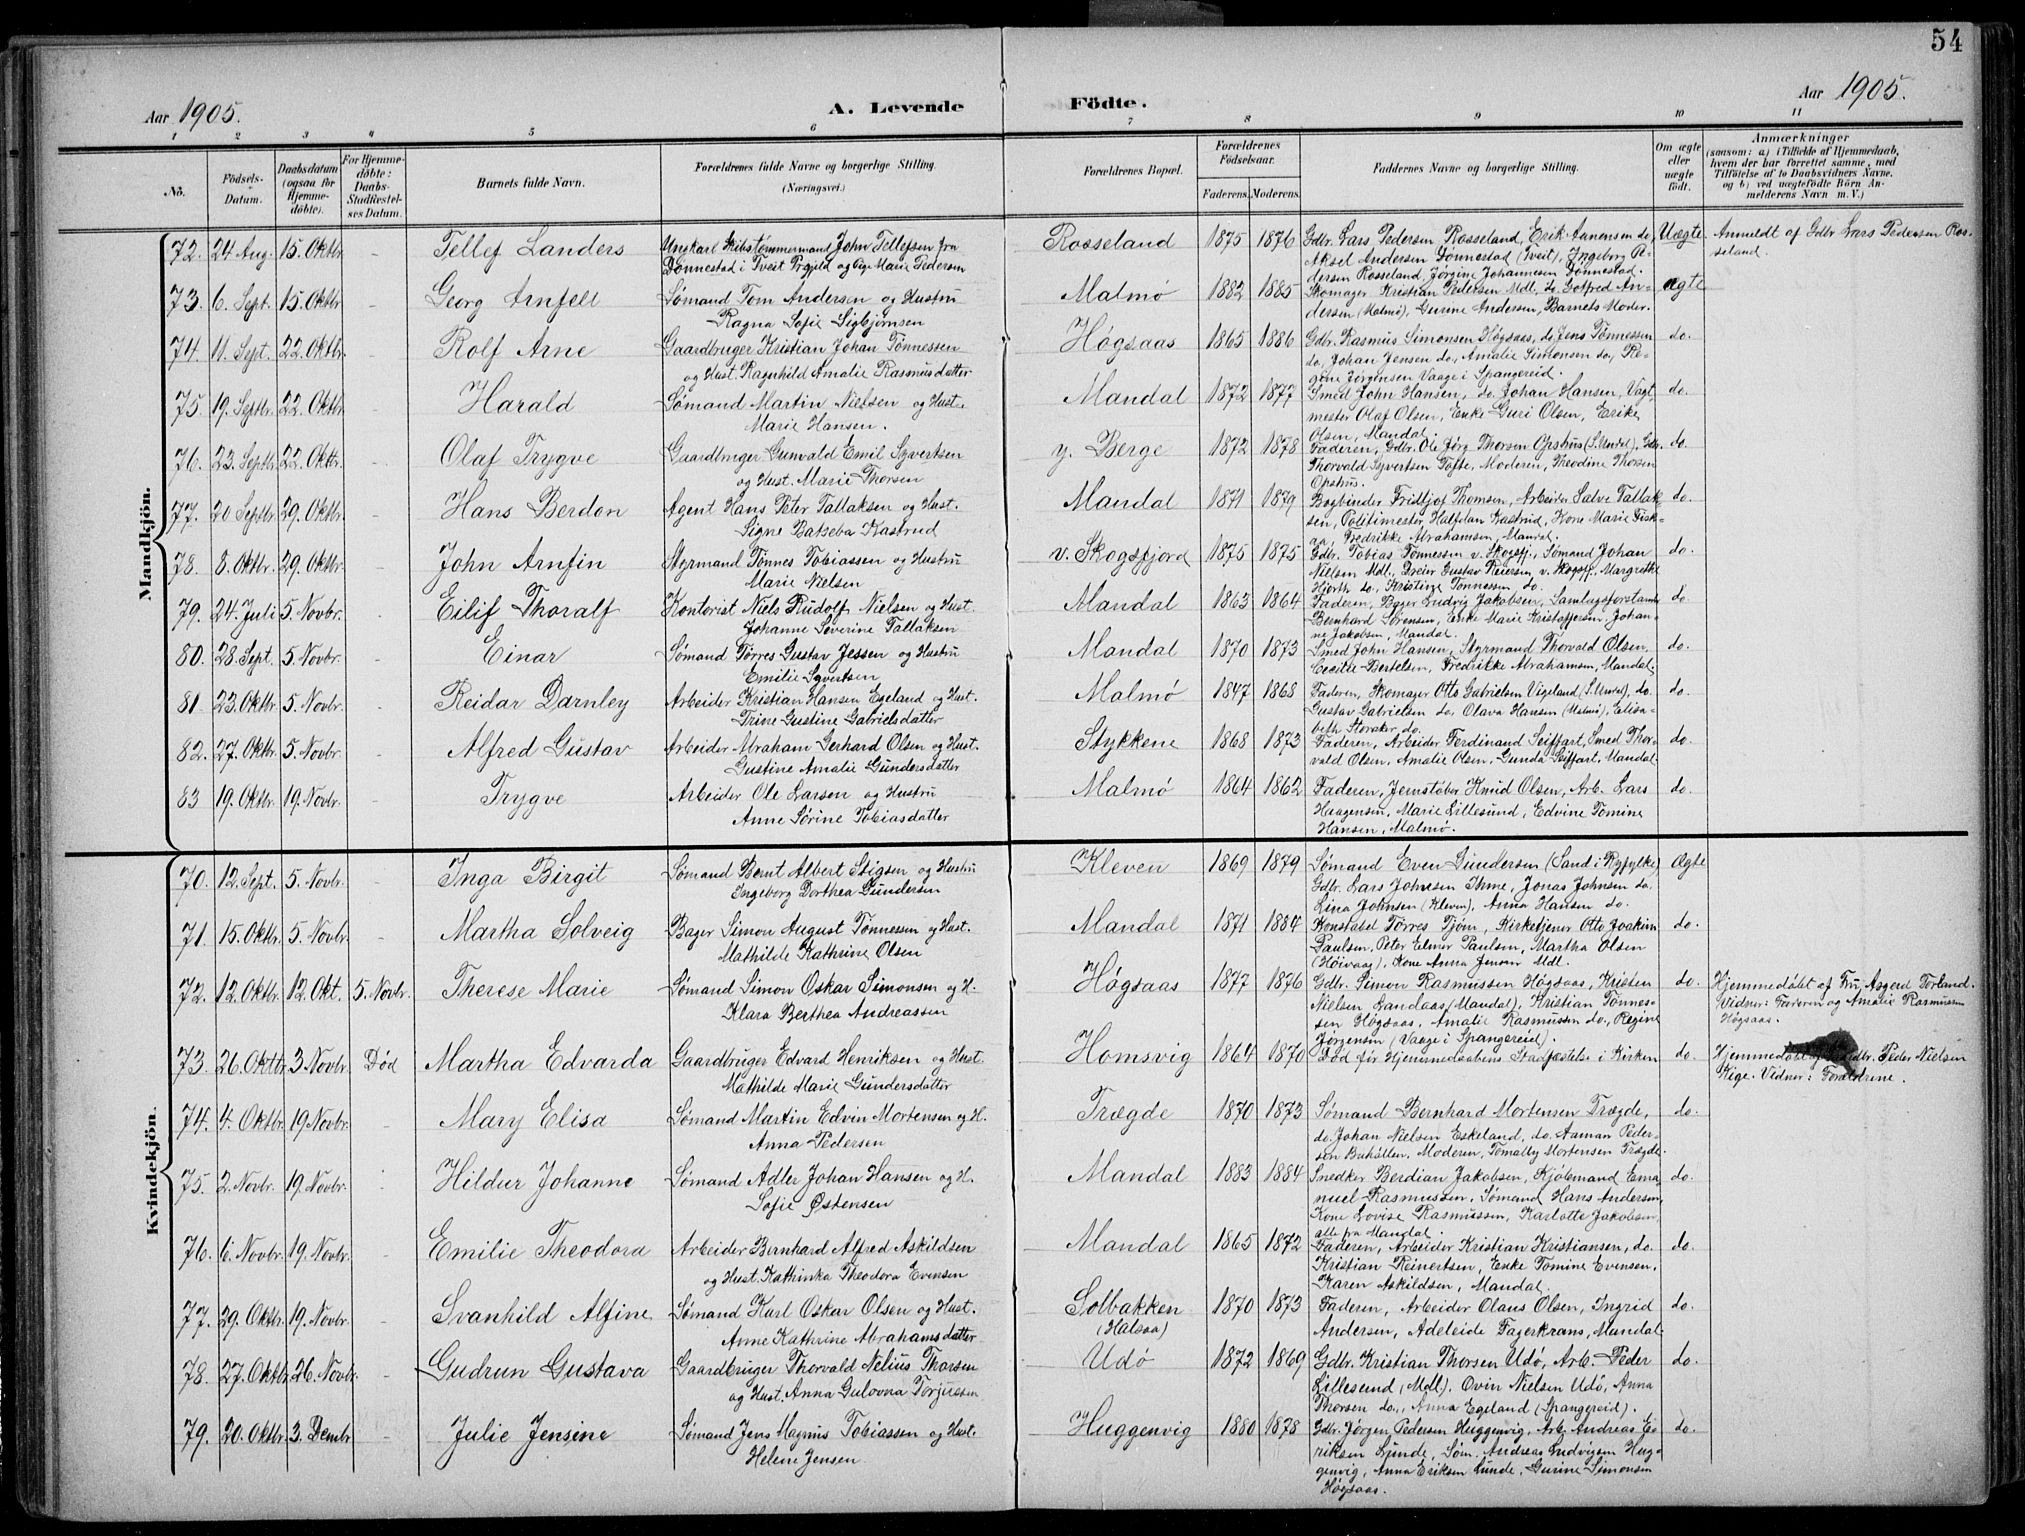 54
Aar 1905. A. Levende Födte. Aar 1905.
1 2 3 4 5 6 7 8 9 10 11
No.
Födsels-Datum.
Daabsdatum (ogsaa for Hjemme-döbte).
For Hjemme-döbte: Daabs-Stadfæstel-ses Datum.
Barnets fulde Navn.
Forældrenes fulde Navne og borgerlige Stilling. (Næringsvei.)
Forældrenes Bopæl.
Forældrenes Födselsaar.
Faderens. Moderens.
Faddernes Navne og borgerlige Stilling.
Om ægte eller uægte födt.
Anmærkninger
(saasom: a) i Tilfælde af Hjemmedaab, hvem der har forrettet samme, med Tilföielse af to Daabsvidners Navne, og b) ved uægtefödte Börn An-melderens Navn m. V.)
Mandkjön.
72. 24 Aug. 15. Oktbr. - Tellef Landers Ungkarl Skibstømmermand John Tellefsen fra Rosseland 1875 1876 Gdbr. Lars Pedersen Rosseland, Erik Aanensen do, Uægte Anmeldt af Gdbr Lars Pedersen Ros-
Dønnestad i Tveit Prgjeld og Pige Marie Pedersen Aksel Andersen Dønnestad (Tveit), Ingeborg Pe- seland.
dersen Rosseland, Jørgine Johannesen Dønnestad.
73. 6. Sept. 15. Oktbr - Georg Arnfelt Sømand Tom Andersen og Hustru Malmø 1882 1885 Skomager Kristian Pedersen Mdl, do. Gotfred An- ægte
Ragna Sofie Sigbjørnsen dersen (Malmø), Gunine Andersen, Barnets Moder.
74. 11. Sept. 22. Oktbr. - Rolf Arne Gaardbruger Kristian Johan Tønnessen Høgsaas 1865 1886 Gdbr. Rasmus Simonsen Høgsaas, do Jens Tønnessen do.
og Hust. Ragnhild Amalie Rasmusdatter do, Johan Jensen do, Amalie Simonsen do, Re-
gine Jørgensen Vaage i Spangereid.
75. 19. Septbr. 22. Oktbr. - Harald Sømand Martin Nielsen og Hust. Mandal 1872 1877 Smed John Hansen, do. Johan Hansen, Vagt- do.
Marie Hansen. mester Olaf Olsen, Enke Guri Olsen, Erike
Olsen, Mandal.
76. 23. Septbr. 22. Oktbr. - Olaf Trygve Gaardbruger Gunvald Emil Syvertsen y. Berge 1872 1878 Faderen, Gdbr. Ole Jørg Thorsen Opshus (S. Undal), Gdbr. do.
og Hust. Marie Thorsen Thorvald Syvertsen Tofte, Moderen, Theodine Thorsen
Opshus.
77. 20 Septbr 29. Oktbr. - Hans Berdon Agent Hans Peter Tallaksen og Hust. Mandal 1871 1879 Bogbinder Fridtjof Thomsen, Arbeider Salve Tallak- do.
Signe Batseba Kastrud sen, Politimester Halfdan Kastrud, Kone Marie Fisk-
aa, Fredrikke Abrahamsen, Mandal.
78. 8. Oktbr. 29. Oktbr. - John Arnfin Styrmand Tønnes Tobiassen og Hustru v. Skogsfjord 1875 1875 Gdbr. Tobias Tønnessen v. Skogsfj., Sømand Johan do.
Marie Nielsen Nielsen Mdl, Dreier Gustav Reiersen v. Skogsfj., Margrethe
Hjorth do., Kristine Tønnessen do.
79. 24. Juli 5. Novbr. - Eilif Thoralf Kontorist Niels Rudolf Nielsen og Hust. Mandal 1863 1864 Faderen, Bager Ludvig Jakobsen, Samlagsforstander do
Johanne Severine Tallaksen Bernhard Sørensen, Enke Marie Kristoffersen, Johan-
ne Jakobsen, Mandal.
80. 28. Sept. 5. Novbr. - Einar Sømand Tørres Gustav Jessen og Hustru Mandal 1870 1873 Smed John Hansen, Styrmand Thorvald Olsen, do.
Emilie Syvertsen Cecilie Bertelsen, Fredrikke Abrahamsen, Mandal.
81 23. Oktbr. 5. Novbr. - Reidar Darnley Arbeider Kristian Hansen Egeland og Hust. Malmø 1847 1868 Faderen, Skomager Otto Gabrielsen Vigeland (S. Undal), do. do.
Trine Gustine Gabrielsdatter Gustav Gabrielsen do, Olava Hansen (Malmø), Elisa-
beth Storaker do.
82. 27. Oktbr. 5. Novbr. - Alfred Gustav Arbeider Abraham Gerhard Olsen og Hust. Stykkene 1868 1873 Faderen, Arbeider Ferdinand Seiffart, Smed Thor- do.
Gustine Amalie Gundersdatter vald Olsen, Amalie Olsen, Gunda Seiffart, Mandal.
83 19. Oktbr. 19. Novbr. - Trygve Arbeider Ole Larsen og Hustru Malmø 1864 1862 Faderen, Jernstøber Knud Olsen, Arb. Lars do.
Anne Sørine Tobiasdatter Haagensen, Marie Lillesund, Edvine Tomine
Hansen, Malmø.
Kvindekjön.
70. 12. Sept. 5. Novbr. - Inga Birgit Sømand Bernt Albert Stigsen og Hustru Kleven 1869 1879 Sømand Even Gundersen (Sand i Ryfylke) Ægte
Ingeborg Dorthea Gundersen Gdbr. Lars Johnsen Ihme, Jonas Johnsen do.
Lina Johnsen (Kleven), Anna Hansen do.
71. 15. Oktbr. 5. Novbr. - Martha Solveig Bager Simon August Tønnesen og Hust. Mandal 1871 1884 Konstabel Tørres Tjøm, Kirketjener Otto Joakim do.
Mathilde Kathrine Olsen Paulsen, Peter Elmer Paulsen, Martha Olsen
(Høivaag), Kone Anna Jensen Mdl.
72. 12. Oktbr. 12. Okt. 5. Novbr. Therese Marie Sømand Simon Oskar Simonsen og H. Høgsaas 1877 1876 Gdbr. Simon Rasmussen Høgsaas, Kristen do. Hjemmedøbt af Fru Asgerd Torland.
Klara Berthea Andreassen Nielsen Landaas (Mandal), Kristian Tønnes- Vidner: Faderen og Amalie Rasmussen
sen Høgsaas, Amalie Rasmussen do., Regine Høgsaas.
Jørgensen (Vaage i Spangereid).
73. 26. Oktbr. 3. Novbr. Død Martha Edvarda Gaardbruger Edvard Henriksen og Hust. Homsvig 1864 1870 Død før Hjemmedaabens Stadfæstelse i Kirken do. Hjemmedøbt af Gaardbr. Peder Nielsen
Mathilde Marie Gundersdatter Kige. Vidner: Forældrene.
74. 4. Oktbr. 19. Novbr. Mary Elisa Sømand Martin Edvin Mortensen og H. Trægde 1870 1873 Sømand Bernhard Mortensen Trægde, do.
Anna Pedersen do. Johan Nielsen Eskeland, do. Aaman Peder-
sen Buhøllen, Moderen, Tomally Mortensen Trægde.
75. 2. Novbr. 19. Novbr. Hildur Johanne Sømand Adler Johan Hansen og H. Mandal 1883 1884 Snedker Berdian Jakobsen, Kjøbmand Ema- do.
Sofie Østensen nuel Rasmussen, Sømand Hans Andersen,
Kone Lovise Rasmussen, Karlotte Jakobsen,
alle fra Mandal.
76. 6. Novbr. 19. Novbr. Emilie Theodora Arbeider Bernhard Alfred Askildsen Mandal 1865 1872 Faderen, Arbeider Kristian Kristiansen, do. do.
og Hust. Kathinka Theodora Evensen Kristian Reinertsen, Enke Tomine Evensen,
Karen Askildsen, Mandal.
77. 29. Oktbr. 19. Novbr. - Svanhild Alfine Sømand Karl Oskar Olsen og Hust. Solbakken 1870 1873 Faderen, Arbeider Olaus Olsen, Ingrid do.
Anne Kathrine Abrahamsdatter (Halsaa) Andersen, Adeleide Fagerkrans, Mandal.
78. 27. Oktbr. 26. Novbr. - Gudrun Gustava Gaardbruger Thorvald Nelius Thorsen Udø 1872 1869 Gdbr. Kristian Thorsen Udø, Arb. Peder do.
og Hust. Anna Gulovna Torjussen Lillesund (Mdl). Ovin Nielsen Udø, Anna
Thorsen do., Anna Egeland (Spangereid).
79. 20. Oktbr. 3. Dembr - Julie Jensine Sømand Jens Magnus Tobiassen og Hust. Huggenvig 1880 1878 Gdbr. Jørgen Pedersen Huggenvig, Arb. Andreas E- do.
Helene Jensen. riksen Lunde, Søm. Andreas Ludvigsen Hug-
genvig, Anna Eriksen Lunde, Gurine Simonsen
Høgsaas.